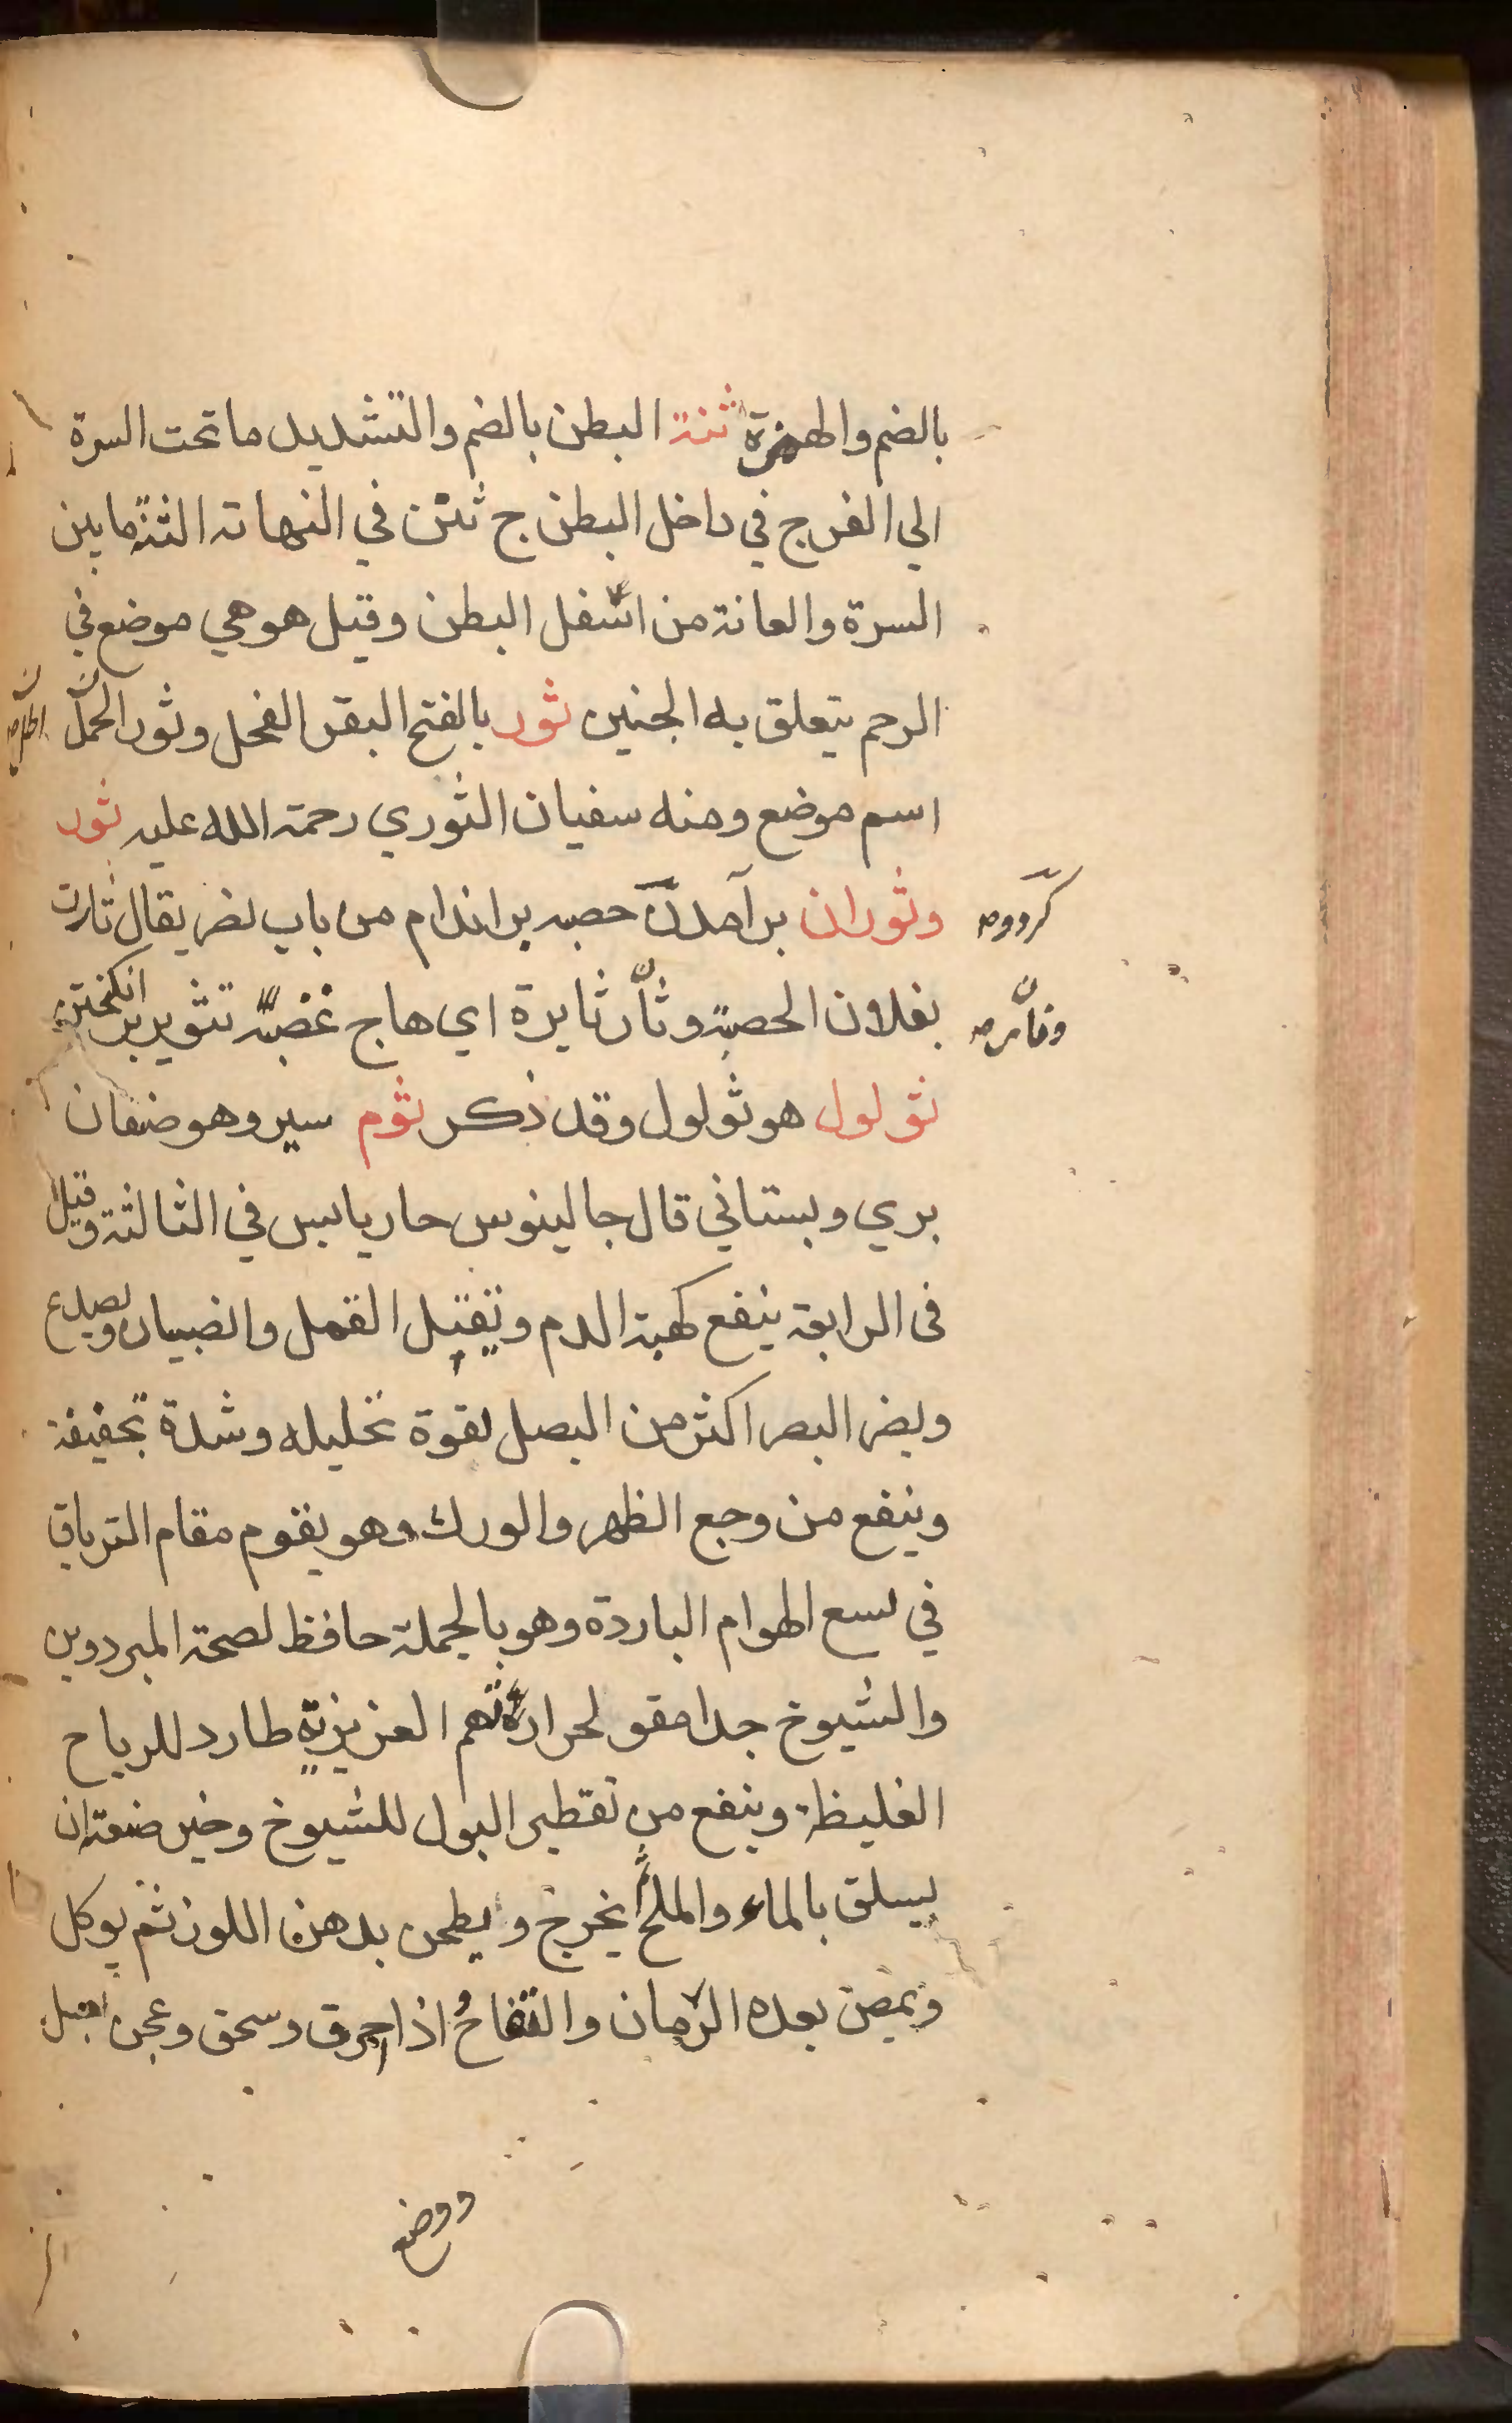 بالضم والهمزة ثنة البطن بالضم والتشديد ما تحت السرة
الي الفرج في داخل البطن ج ثنن في النهاته الثنة ما بين
السرة والعانة من اسفل البطن وقيل هو هي موضع في
الرحم يتعلق به الجنين ثور بالفتح البقر الفحل وثور الحمل
اسم موضع ومنه سفيان الثوري رحمة الله عليه ثور
وثوران برآمدن حصبه بر اندام من باب نصر يقال ثارت
بفلان الحصبة وثار ثايرة اي هاج غضبه تثوير بر انكختن
ثولول هو ثولول وقد ذكر ثوم سير وهو صنفان
بري وبستاني قال جالينوس حار يابس في الثالثة وقيل
فى الرابعة ينفع كهبة الدم ويقتل القمل والصيبان ويصدع
ويضر البصر اكثر من البصل لقوة تحليله وشدة تجفيفة
وينفع من وجع الظهر والورك وهو يقوم مقام الترياق
في لسع الهوام الباردة وهو بالجملة حافظ لصحة المبردوين
والشيوخ جدا مقو لحرارتهم العزيزية طارد للرياح
الغليظة وينفع من تقطير البول للشيوخ وخير صنعته ان
يسلق بالماء والملح ثم يخرج ويطحن بدهن اللوز ثم يوكل
ويمص بعده الرمان والتفاح واذا احرق وسحق وعجن بعسل
ووضع